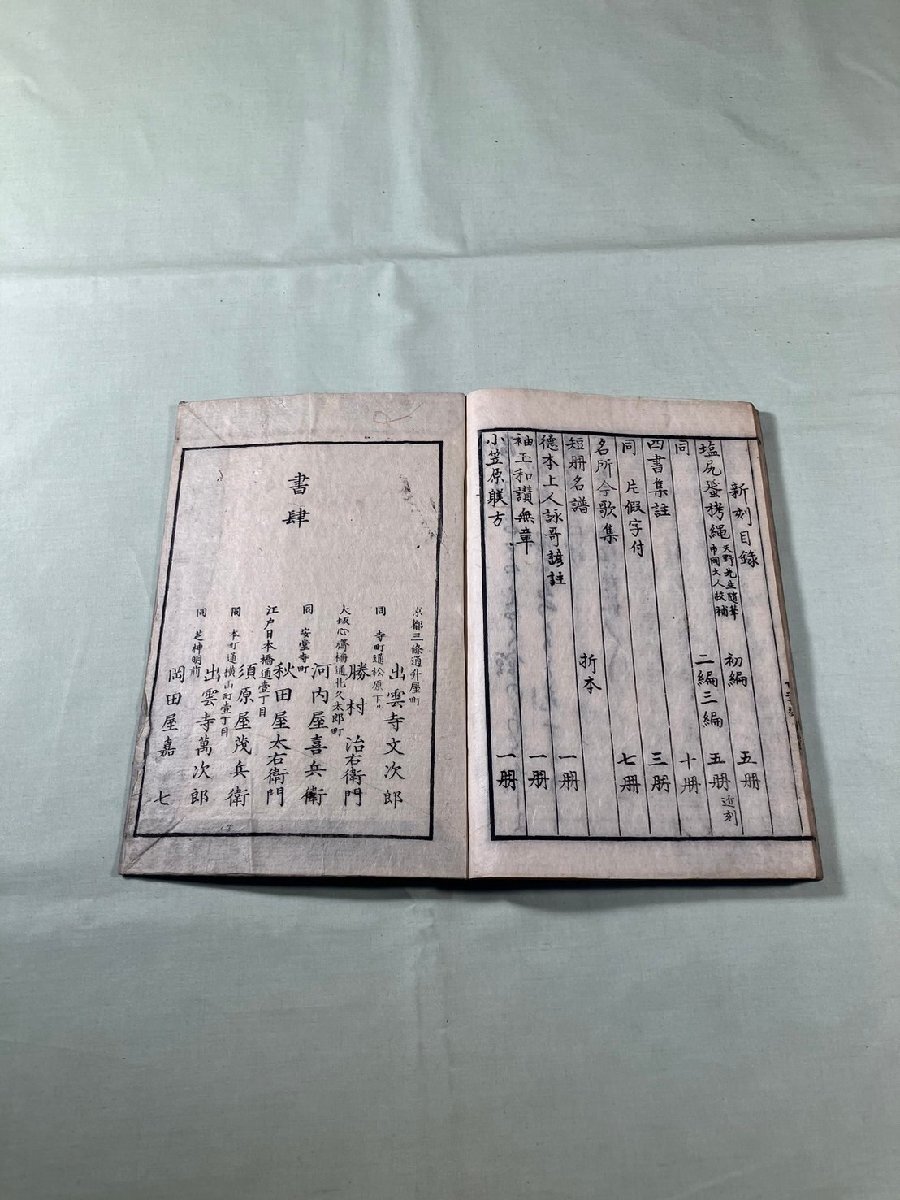 新刻目録
塩尻 天野先生随筆 初編 五册
同 二編三編 五册 近刻
四書集註 十册
同 片假字付 三册
名所今歌集 七册
短册名譜 折本 一册
徳本上人詠哥諺註 一册
袖玉和讃無章 一册
小笠原躾方
書肆
京都三條通升屋町 出雲寺文次郎
同 寺町通松原下ル 勝村治右衛門
大坂心齋橋通北久太郎町 河内屋喜兵衛
同 安堂寺町 秋田屋太右衛門
江戸日本橋通壹丁目 須原屋茂兵衛
同 本町通横山町壹丁目 出雲寺萬次郎
同 芝神明前 岡田屋嘉七